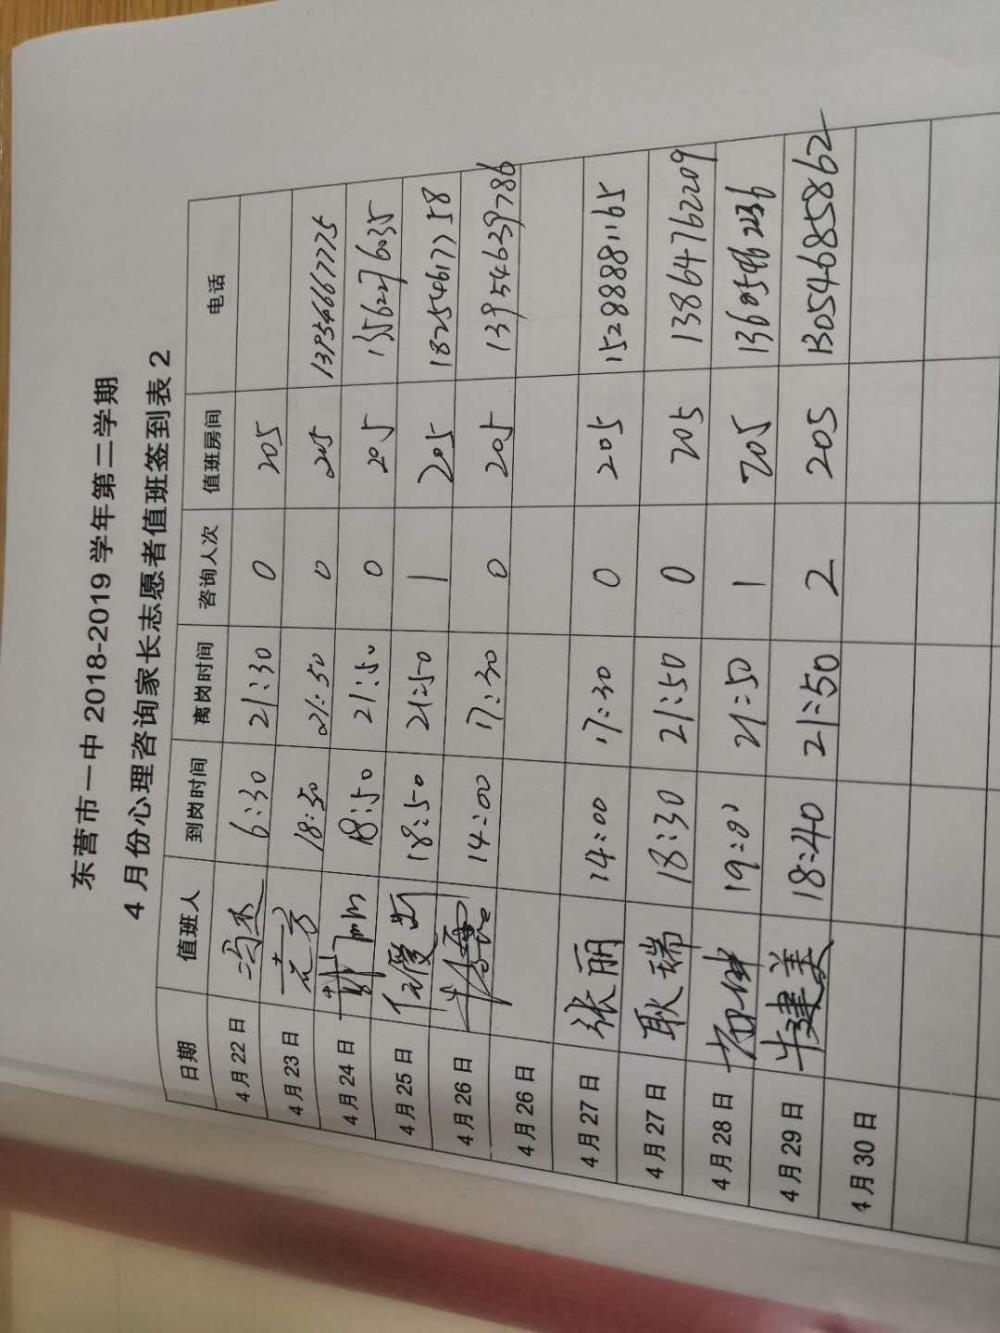 东营市一中 2018-2019 学年第二学期
4 月份心理咨询家长志愿者值班签到表 2
日期 值班人 到岗时间 离岗时间 咨询人次 值班房间 电话
4月22日 6:30 21:30 0 205
4月23日 18:50 21:50 0 205 13954667775
4月24日 18:50 21:50 0 205 13562276035
4月25日 18:50 21:50 1 205 18254617758
4月26日 14:00 17:30 0 205 13954639786
4月26日
4月27日 张丽 14:00 17:30 0 205 15288881165
4月27日 耿瑞 18:30 21:50 0 205 13864762209
4月28日 19:00 21:50 1 205
4月29日 牛建美 18:40 21:50 2 205 13054685862
4月30日